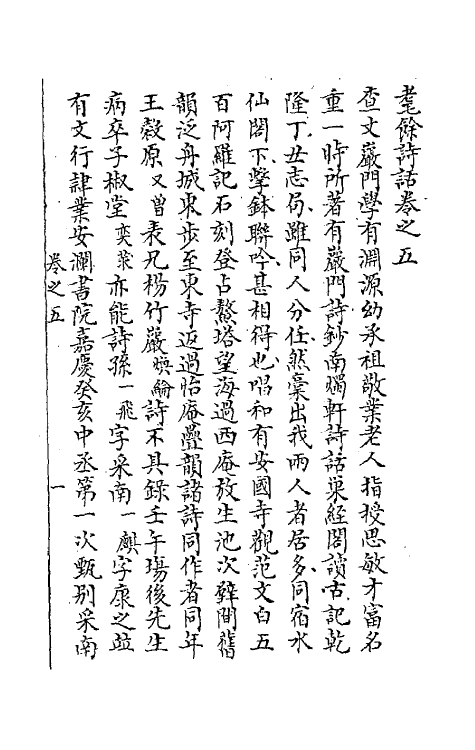 耄餘詩話卷之五
查文巖門學有淵源幼承祖敬業老人指授思敏才富名
重一時所著有巖門詩鈔南燭軒詩話巢經閣讀古記乾
隆丁丑志局雖同人分任然稾出我兩人者居多同宿水
仙閣下擊鉢聯吟甚相得也唱和有安國寺觀范文白五
百阿羅記石刻登占鰲塔望海過西庵放生池次辥間舊
韻泛舟城東步至東寺返過怡庵疊韻諸詩同作者同年
王糓原又曾表兄楊竹巖煥綸詩不具錄壬午瑒後先生
病卒子椒堂奕棠亦能詩孫一飛字采南一麒字康之竝
有文行肄業安瀾書院嘉慶癸亥中丞第一次甄别采南
卷之五
一